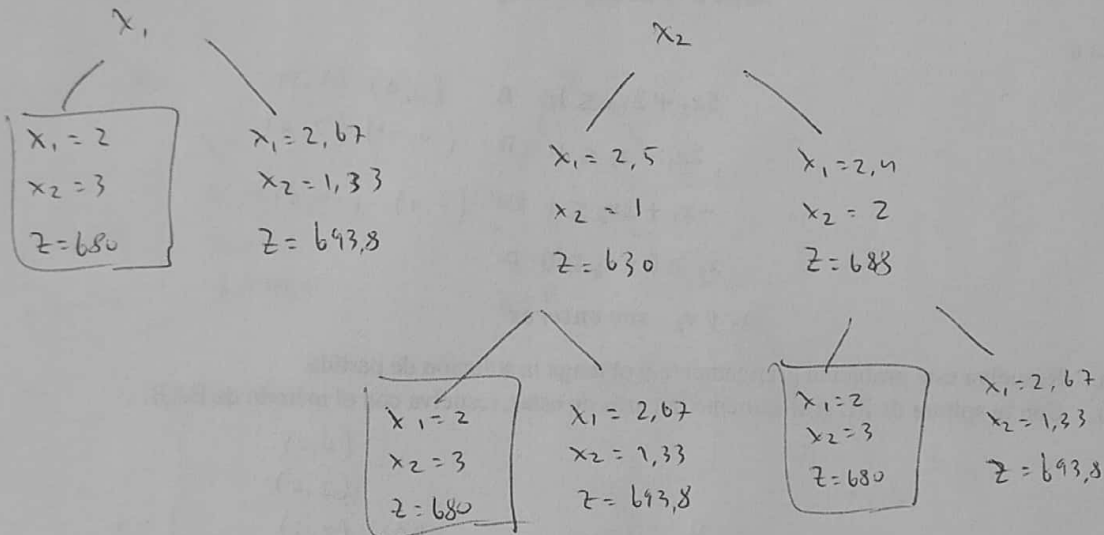 x₁
x₂
x₁ = 2
x₂ = 3
Z = 680
x₁ = 2,67
x₂ = 1,33
Z = 693,8
x₁ = 2,5
x₂ = 1
Z = 630
x₁ = 2,4
x₂ = 2
Z = 688
x₁ = 2
x₂ = 3
Z = 680
x₁ = 2,67
x₂ = 1,33
Z = 693,8
x₁ = 2
x₂ = 3
Z = 680
x₁ = 2,67
x₂ = 1,33
Z = 693,8